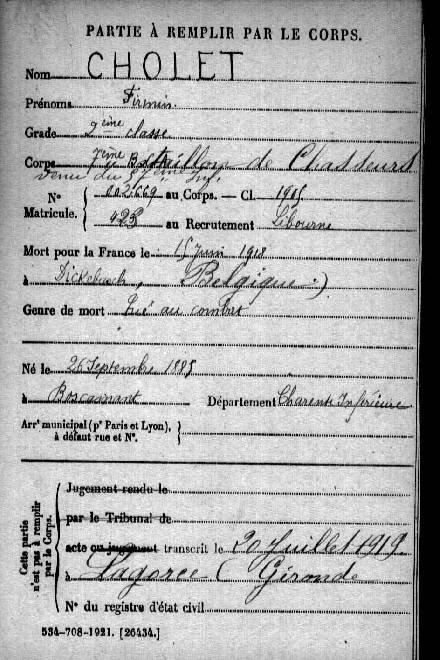 PARTIE À REMPLIR PAR LE CORPS.
Nom CHOLET
Prénoms Firmin.
Grade 2ème classe
Corps 7ème Bataillon de Chasseurs
venu du 57ème Inf.
N° 002669 au Corps. — Cl. 1905
Matricule. 423 au Recrutement Libourne
Mort pour la France le 15 Juin 1918
à Dickebusch, Belgique)
Genre de mort Tué au combat
Né le 26 Septembre 1885
à Boscamnant Département Charente Inférieure
Arrt municipal (pr Paris et Lyon),
à défaut rue et N°.
Cette partie
n'est pas à remplir
par le Corps.
Jugement rendu le
par le Tribunal de
acte ou jugement transcrit le 20 Juillet 1919.
à Lagorce (Gironde
N° du registre d'état civil
534-708-1921. [26434.]